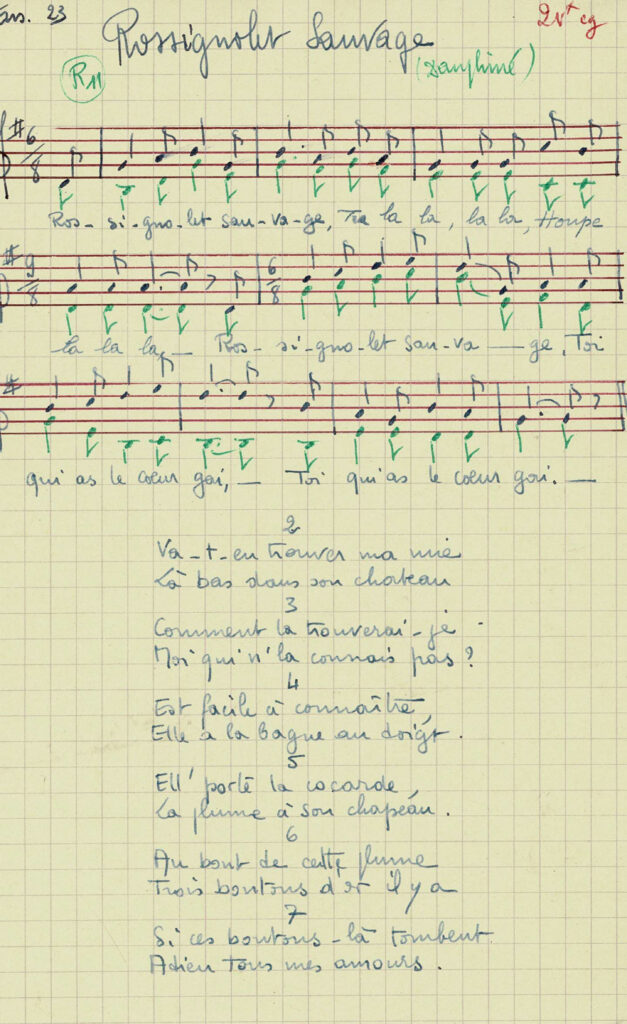 23
2v+ cg
Rossignolet Sauvage
(Dauphiné)
R11
6
8
Ros-si-gno-let sau-va-ge, Tra la la, la la, Houpe
9
8
6
8
la la la, — Ros-si-gno-let sau-va — ge, Toi
qui as le coeur gai, — Toi qui as le coeur gai. —
2
Va-t-en trouver ma mie
Là bas dans son chateau
3
Comment la trouverai-je
Moi qui n'la connais pas ?
4
Est facile à connaître,
Elle a la bague au doigt.
5
Ell' porte la cocarde,
La plume à son chapeau.
6
Au bout de cette plume
Trois boutons d'or il y a
7
Si ces boutons-là tombent
Adieu tous mes amours.